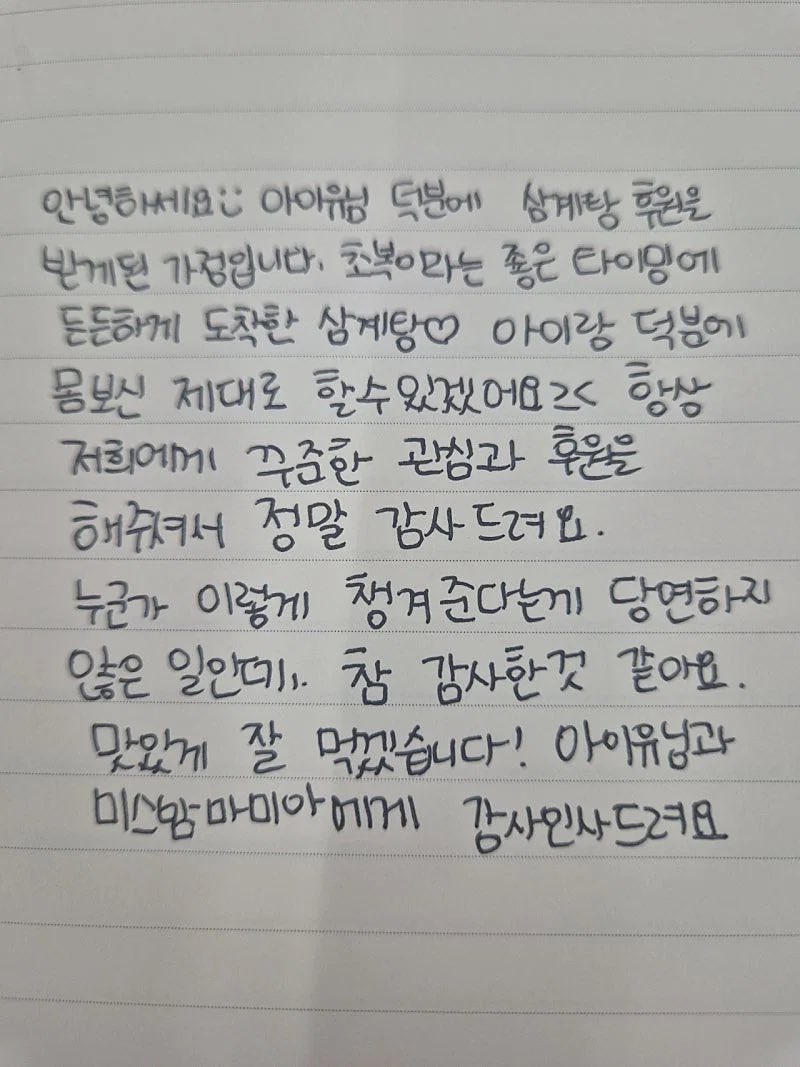 안녕하세요:) 아이유님 덕분에 삼계탕 후원을
받게된 가정입니다. 초복이라는 좋은 타이밍에
든든하게 도착한 삼계탕♡ 아이랑 덕분에
몸보신 제대로 할수있겠어요>< 항상
저희에게 꾸준한 관심과 후원을
해주셔서 정말 감사드려요.
누군가 이렇게 챙겨준다는게 당연하지
않은 일인데.. 참 감사한것 같아요.
맛있게 잘 먹겠습니다! 아이유님과
미스맘마미아에게 감사인사드려요